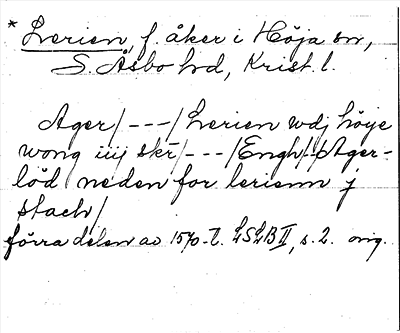 * Lerien, f. åker i Höja sn,
S. Åsbo hd, Krist. l.
Ager/---/Lerien wdj höye
wong iiij skr/---/Engh/--/Ager-
löd neden for lerienn j
stach/
förra delen av 1570-t. LSLB II, s. 2. orig.